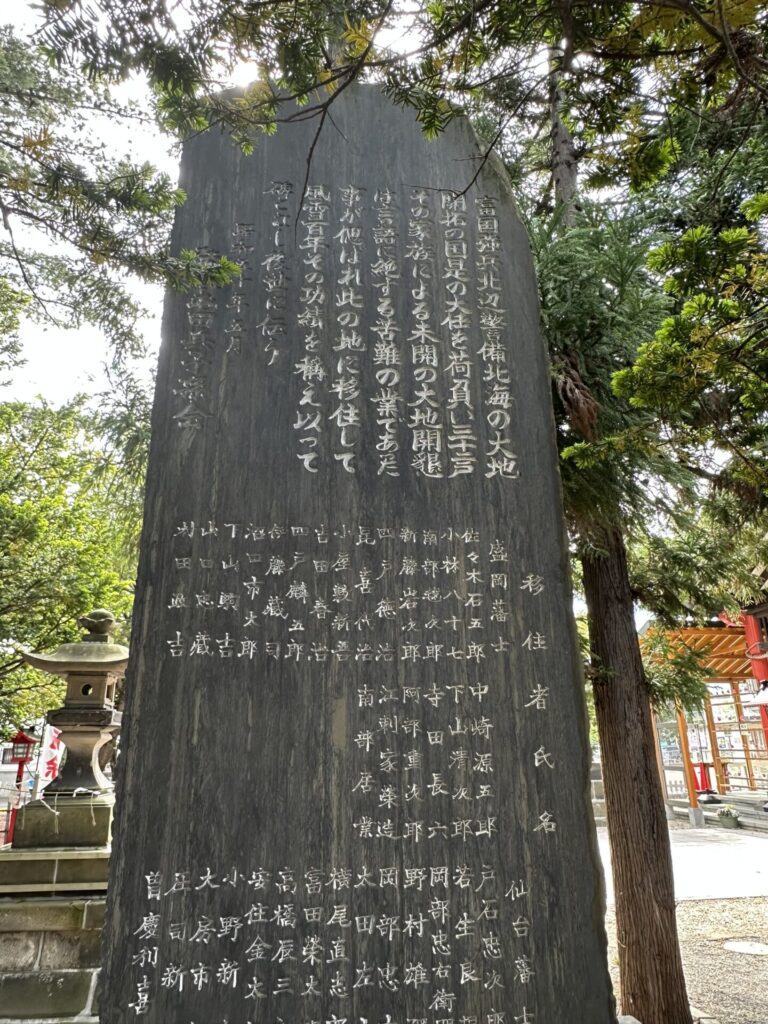 富国強兵北辺警備北海の大地
開拓の国是の大任を荷負い三十戸
その家族による未開の大地開懇
は言語に絶する苦難の業であった
事が偲ばれ此の地に移住して
風雪百年その功績を稱え以って
碑とし後世に伝う
年五月
移住者氏名
盛岡藩士
佐々木石五郎
中崎源五郎
小林八十七
下山清次郎
南部
寺田長六
新藤岩次郎
阿部重次郎
四戸徳治
江刺家榮造
昆喜代治
南部居業
小屋
吉田春治
四戸麟五郎
伊藤蔵司
沼口市太郎
下山
山口忠蔵
村田
仙台藩士
戸石忠次郎
若生良
岡部忠右衛
野村雄
岡部忠
太田左
横尾直志
富田榮太
高橋辰三
安住金太
小野新
大房市
庄司新
曽慶利